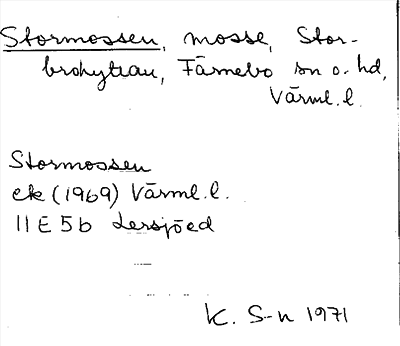 Stormossen, mosse, Stor-
brohyttan, Färnebo sn o. hd,
Värml. l.
Stormossen
ek (1969) Värml. l.
11 E 5 b Lersjöed
K. S-n 1971